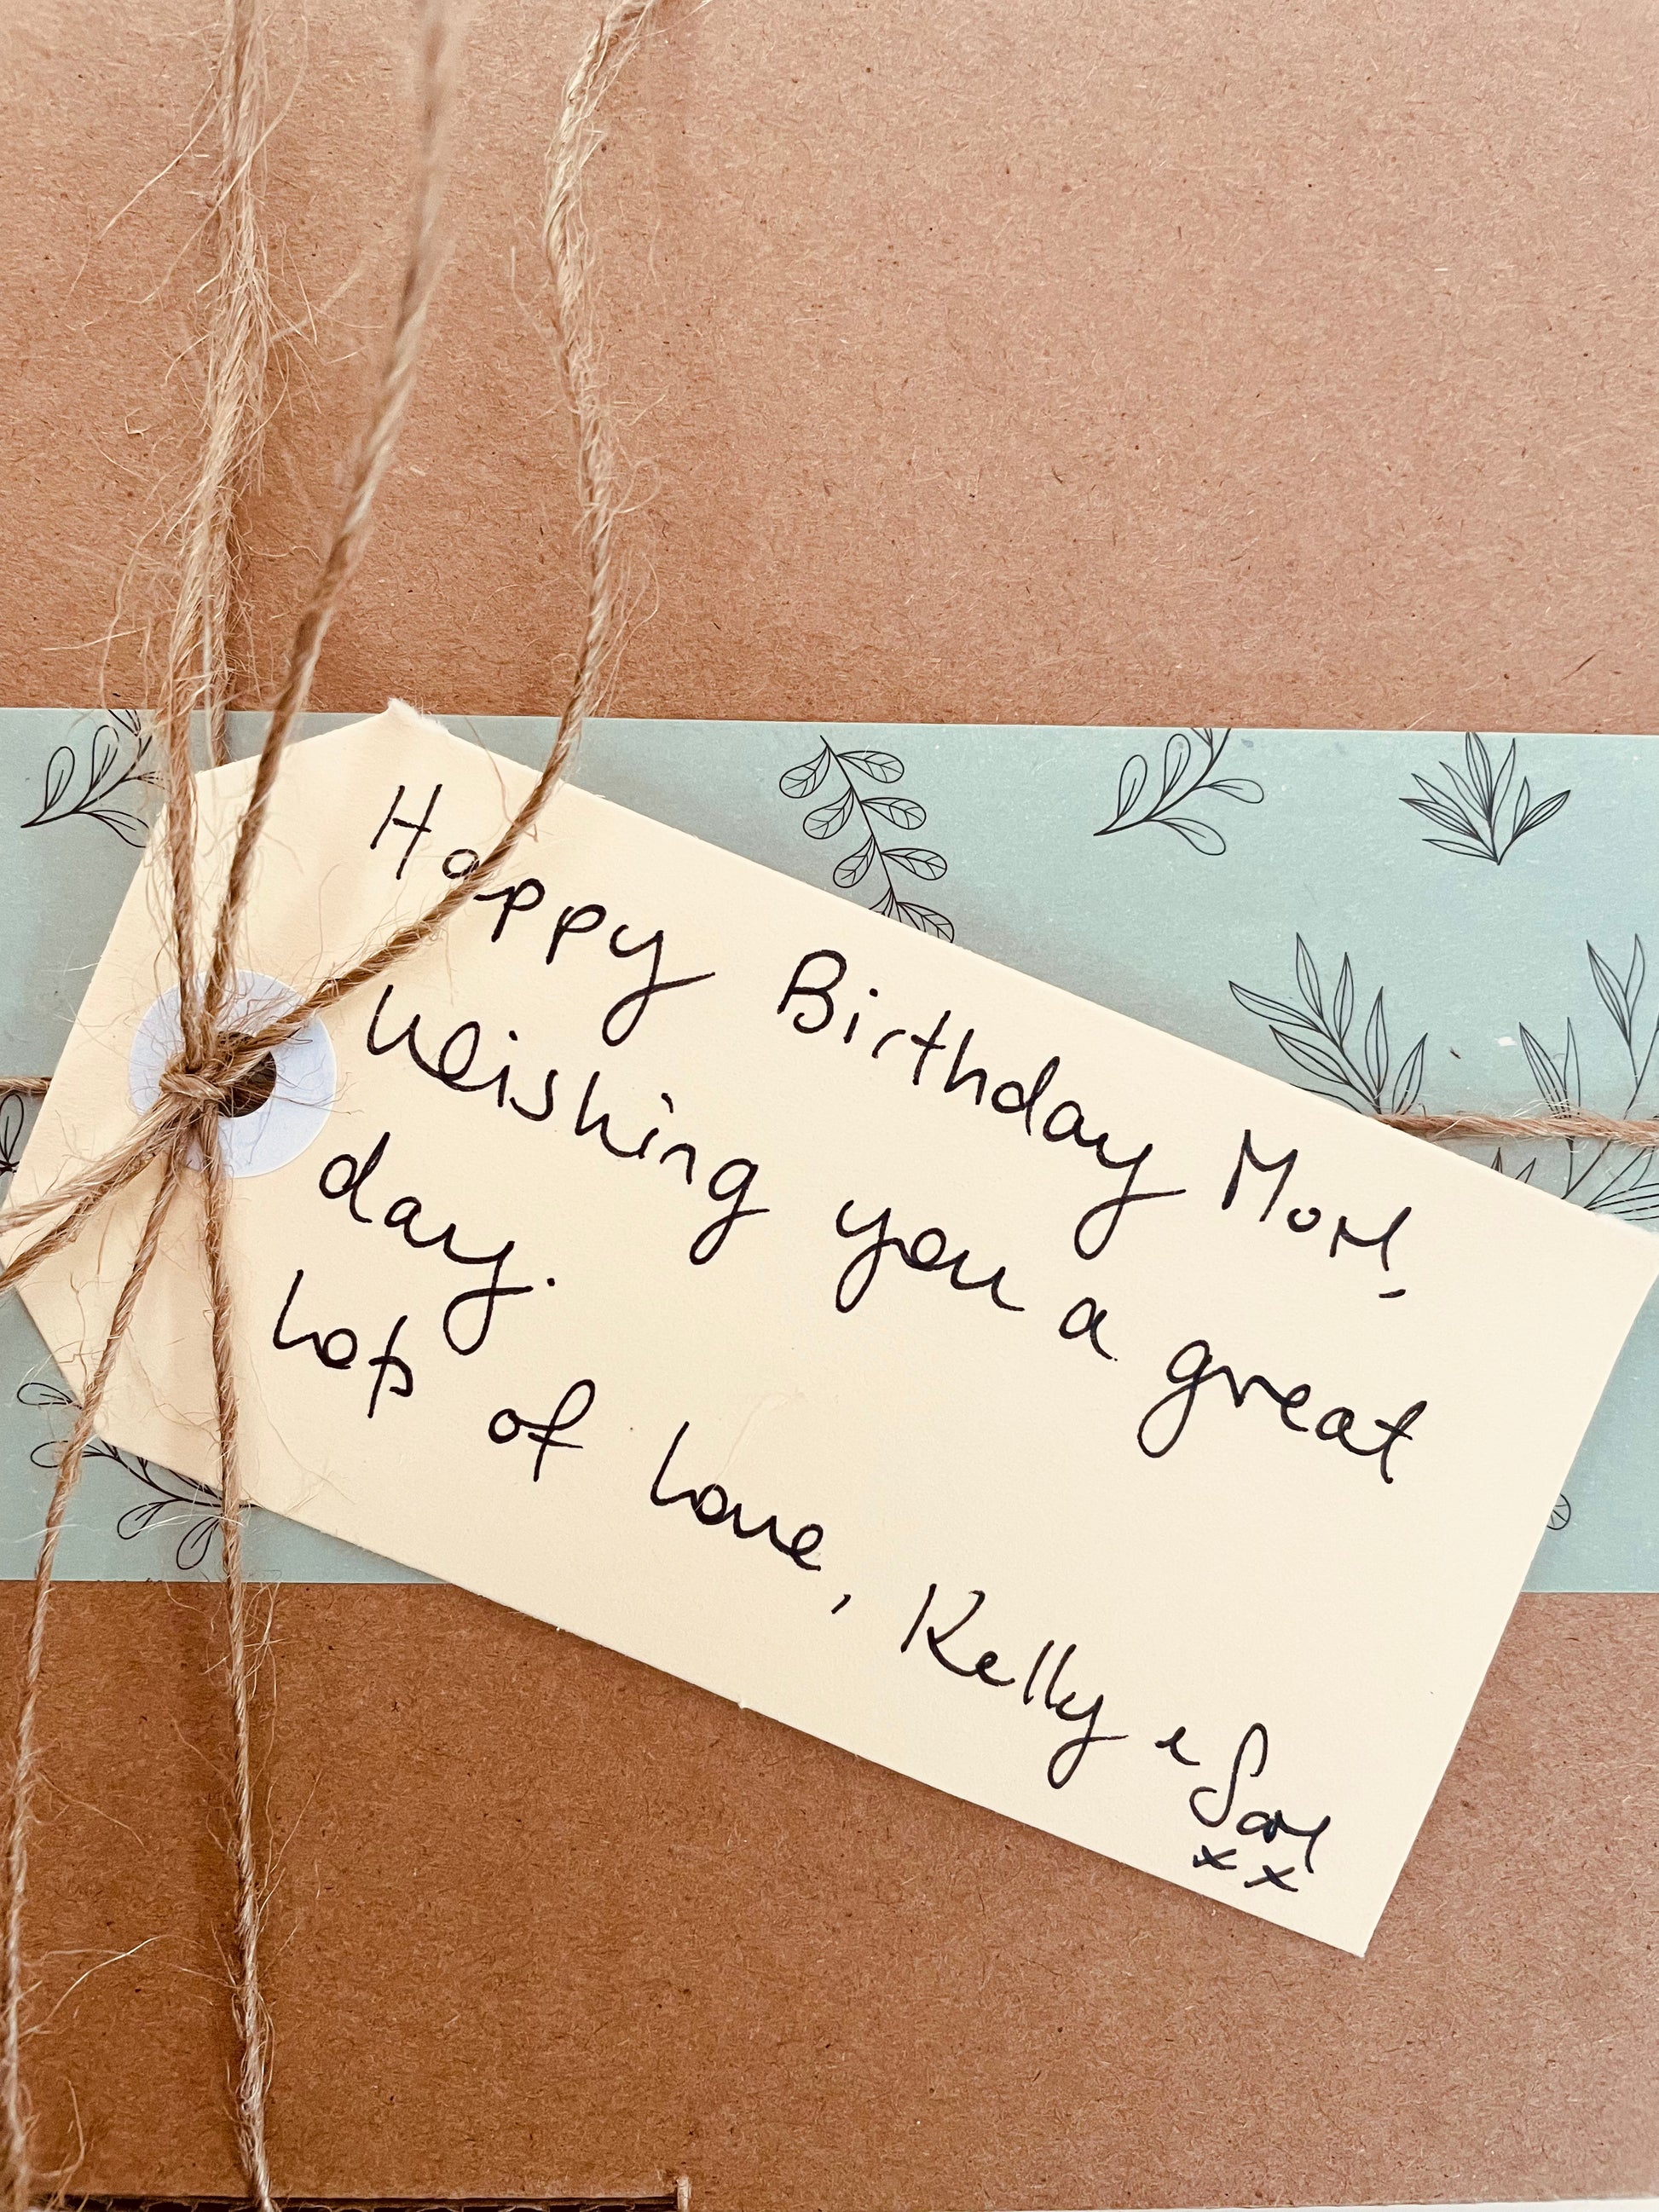 Happy Birthday Mom,
Wishing you a great
day.
Lots of Love, Kelly & Sam
xx